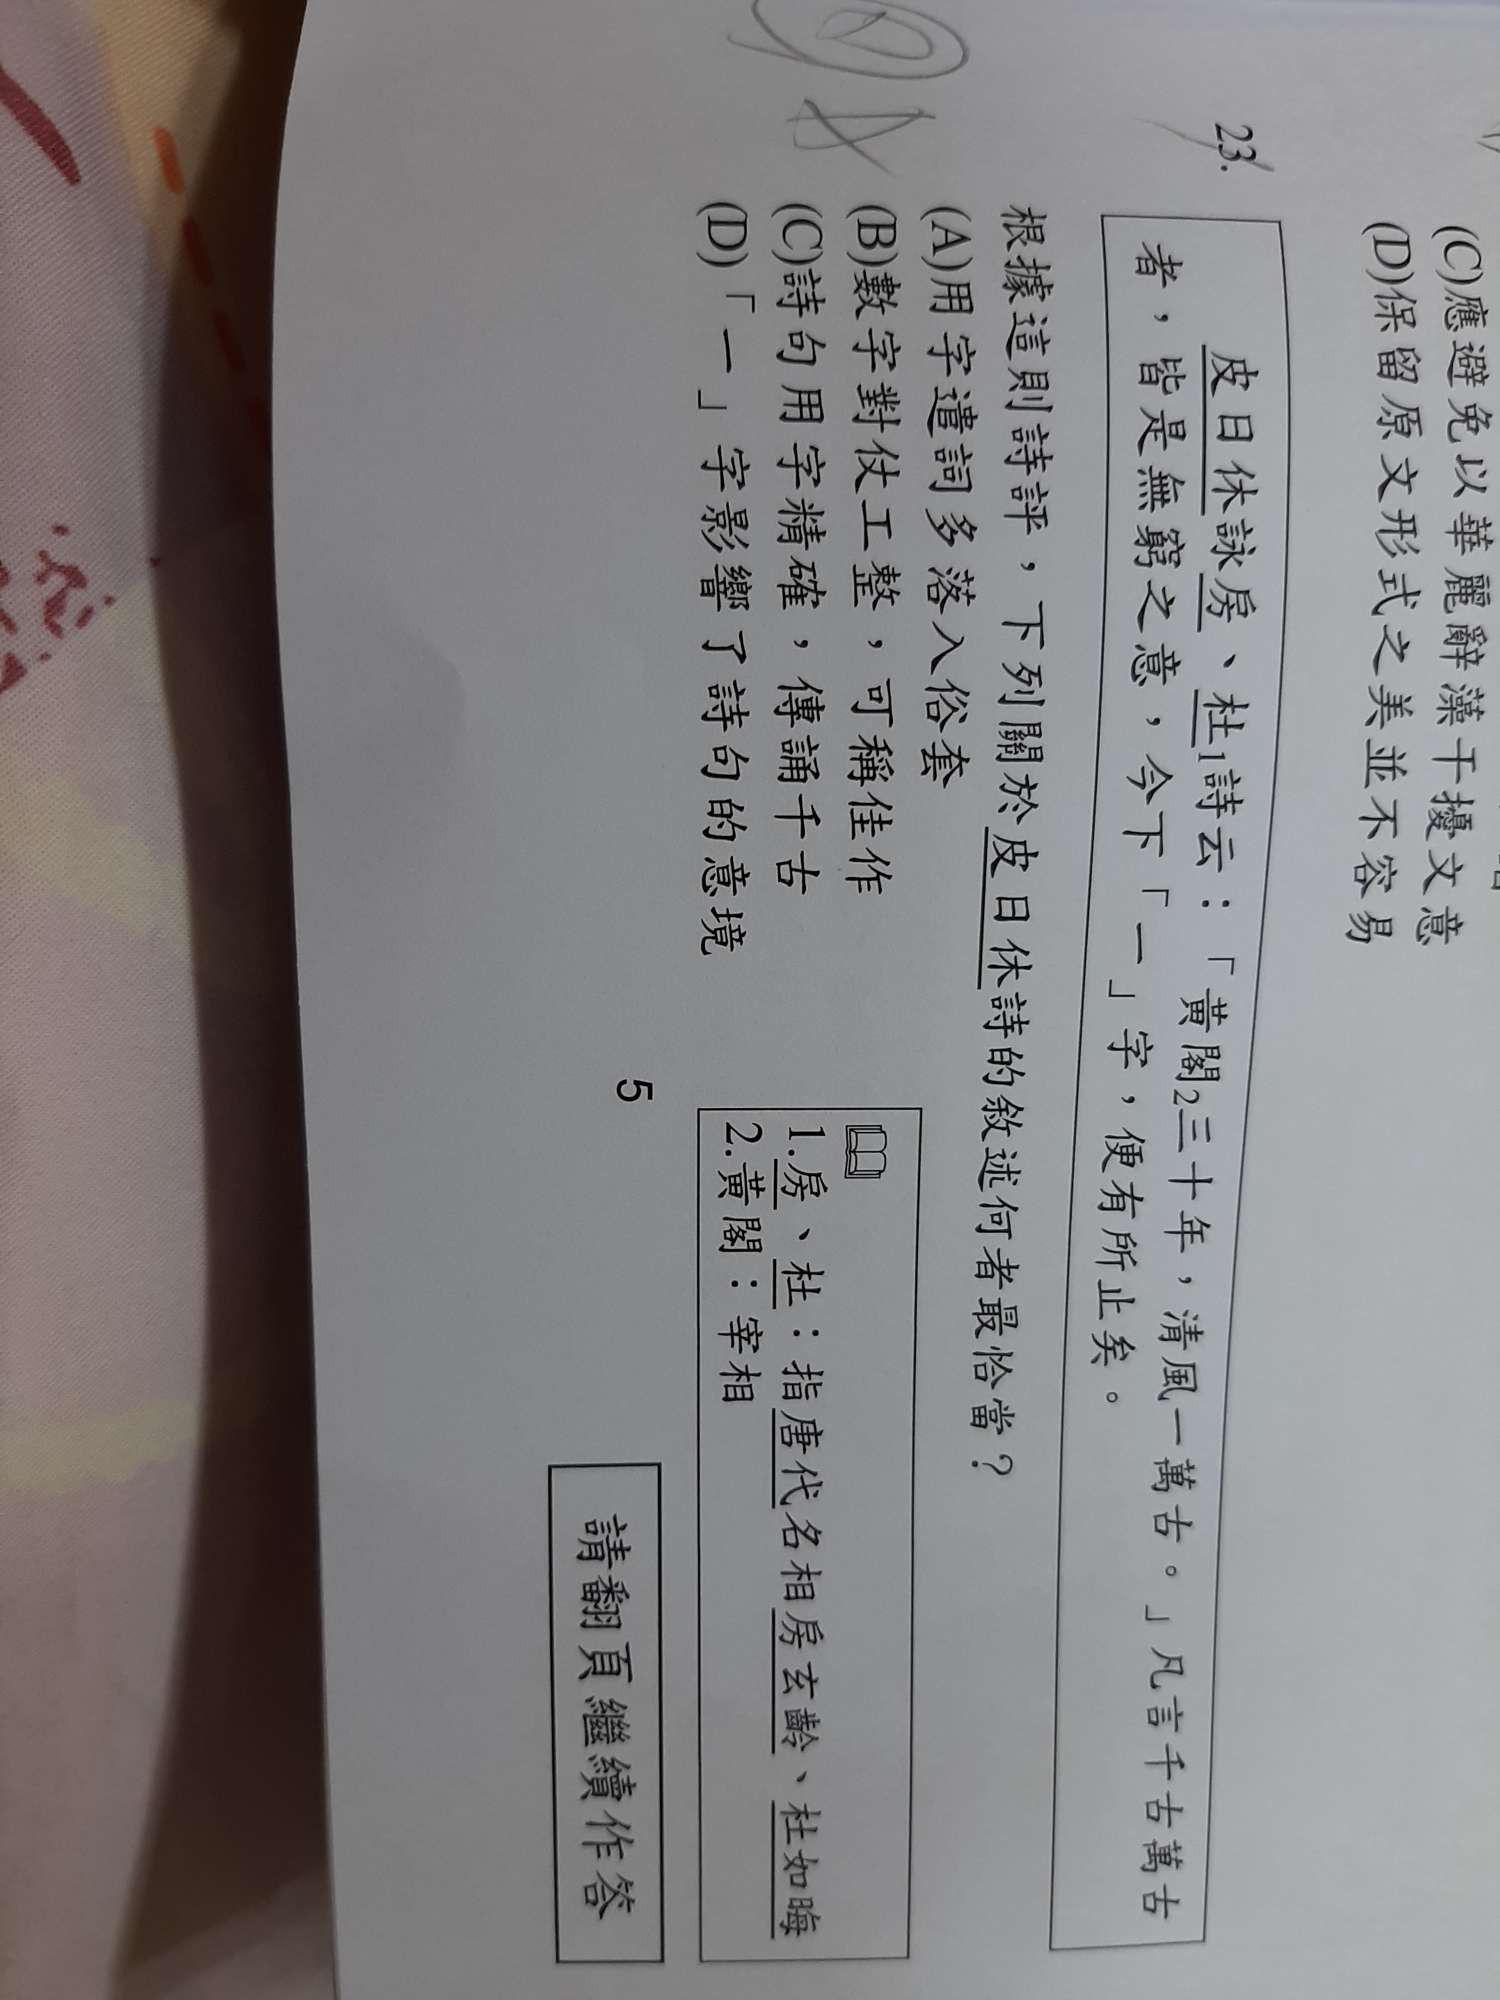 (C)應避免以華麗辭藻干擾文意
(D)保留原文形式之美並不容易
23.
皮日休詠房、杜1詩云：「黃閣2三十年，清風一萬古。」凡言千古萬古
者，皆是無窮之意，今下「一」字，便有所止矣。
根據這則詩評，下列關於皮日休詩的敘述何者最恰當？
(A)用字遣詞多落入俗套
(B)數字對仗工整，可稱佳作
(C)詩句用字精確，傳誦千古
(D)「一」字影響了詩句的意境
1.房、杜：指唐代名相房玄齡、杜如晦
2.黃閣：宰相
5
請翻頁繼續作答